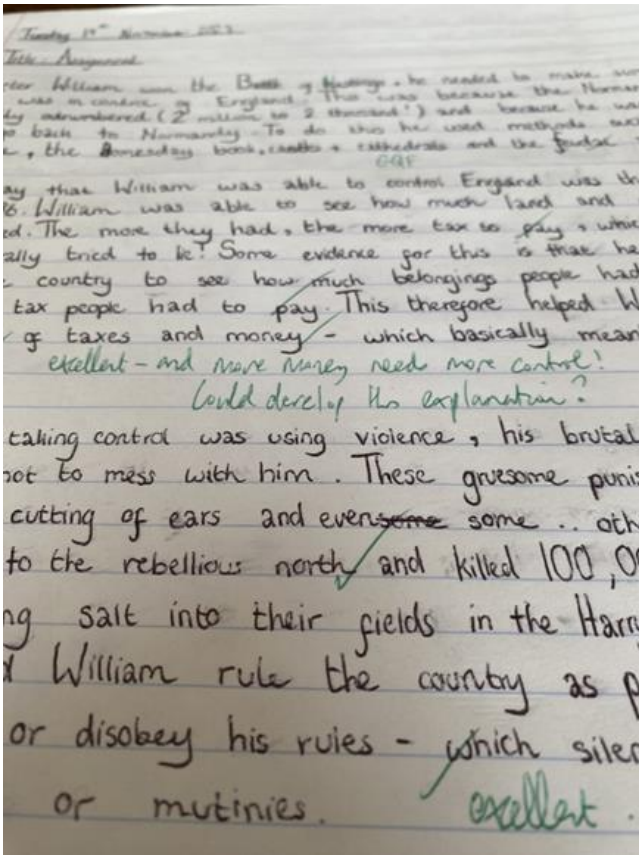 Tuesday 19th November
Title: Assignment
ter William won the of Hastings, he needed to make sur
was in control of England. This was because the Norman
ly outnumbered (2 million to 2 thousand!) and because he wa
back to Normandy. To do this he used methods suc
, the Domesday book, castles + cathedrals and the
ay that William was able to control England was th
6. William was able to see how much land and
ed. The more they had, the more tax to pay, whic
ally tried to lie! Some evidence for this is that he
country to see how much belongings people had
tax people had to pay. This therefore helped W
of taxes and money - which basically mean
excellent - and more money need more control!
Could develop this explanation?
taking control was using violence, his brutal
not to mess with him. These gruesome punis
cutting of ears and even some some .. oth
to the rebellious north and killed 100,00
ng salt into their fields in the Harry
d William rule the country as p
or disobey his rules - which silen
or mutinies. excellent.